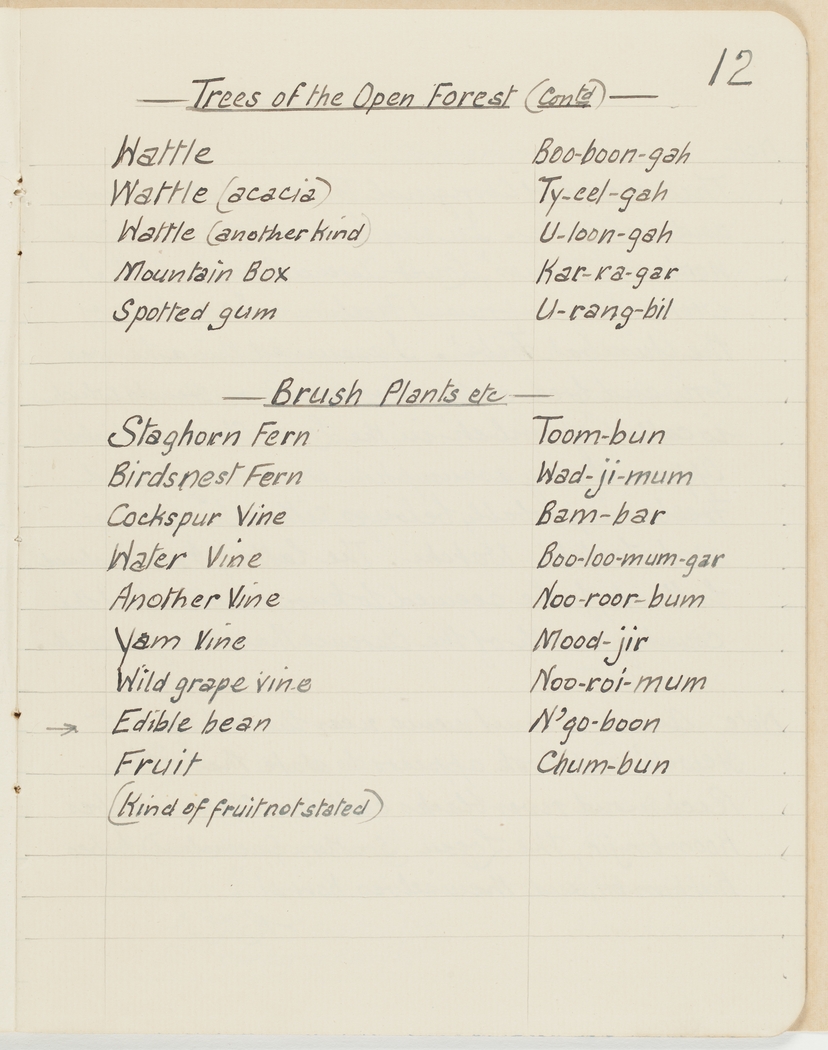 12
— Trees of the Open Forest (Contd) —
Wattle Boo-boon-gah
Wattle (acacia) Ty-eel-gah
Wattle (another kind) U-loon-gah
Mountain Box Kar-ra-gar
Spotted gum U-rang-bil
— Brush Plants etc —
Staghorn Fern Toom-bun
Birdsnest Fern Wad-ji-mum
Cockspur Vine Bam-bar
Water Vine Boo-loo-mum-gar
Another Vine Noo-roor-bum
Yam Vine Mood-jir
Wild grape vine Noo-roi-mum
→ Edible bean N'go-boon
Fruit Chum-bun
(Kind of fruit not stated)